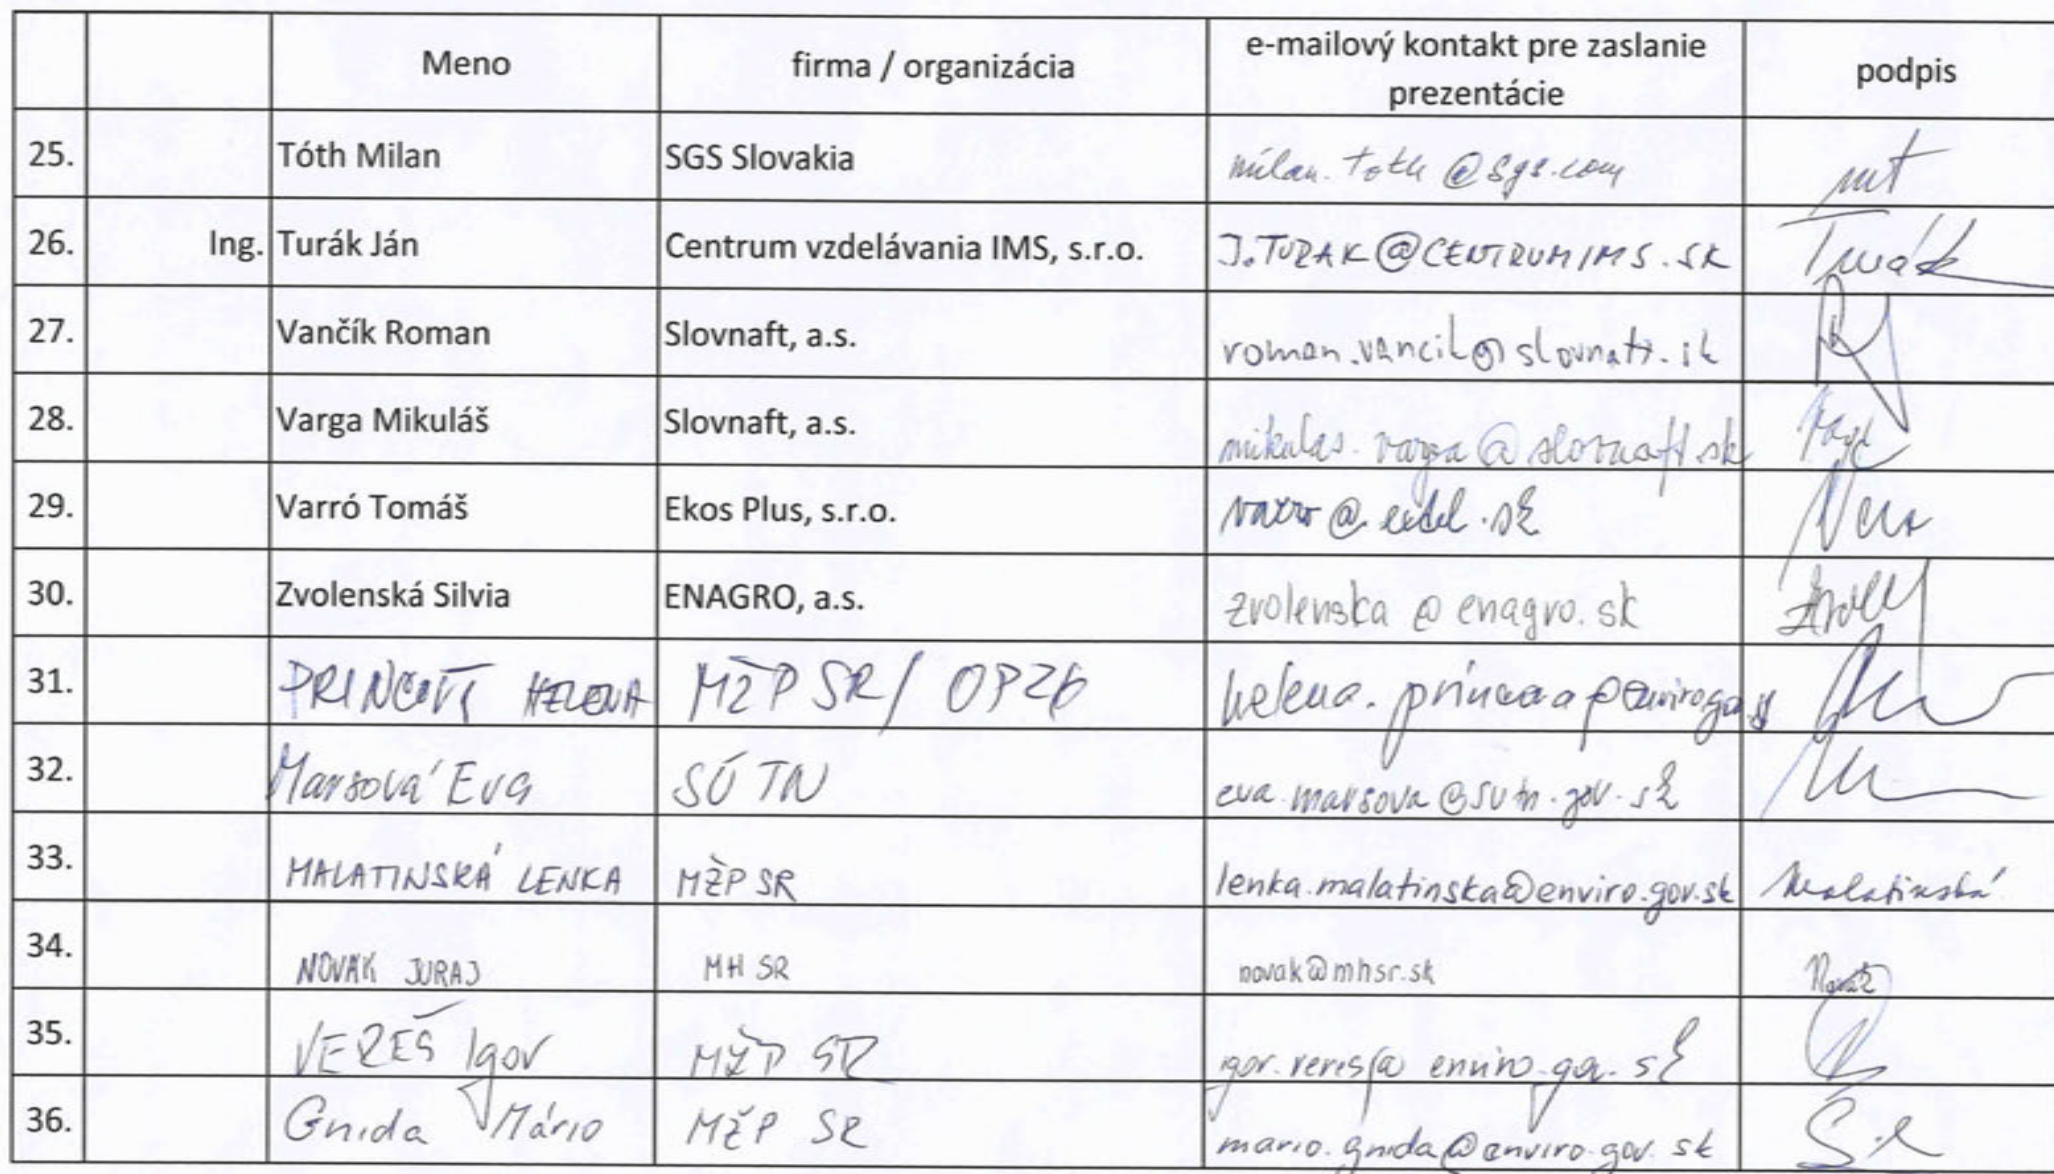 Meno firma / organizácia e-mailový kontakt pre zaslanie prezentácie podpis
25. Tóth Milan SGS Slovakia milan.toth@sgs.com mt
26. Ing. Turák Ján Centrum vzdelávania IMS, s.r.o. J.TURAK@CENTRUMIMS.SK Turák
27. Vančík Roman Slovnaft, a.s. roman.vancik@slovnaft.sk
28. Varga Mikuláš Slovnaft, a.s. mikulas.varga@slovnaft.sk
29. Varró Tomáš Ekos Plus, s.r.o.
30. Zvolenská Silvia ENAGRO, a.s. zvolenska@enagro.sk
31. PRINCOVÁ HELENA MŽP SR/
32. Marsová Eva SÚTN eva.marsova@sutn.gov.sk
33. MALATINSKÁ LENKA MŽP SR lenka.malatinska@enviro.gov.sk Malatinská
34. NOVÁK JURAJ MH SR novak@mhsr.sk Novák
35. VEREŠ Igor MŽP SR igor.veres@enviro.gov.sk
36. Gnida Mário MŽP SR mario.gnida@enviro.gov.sk